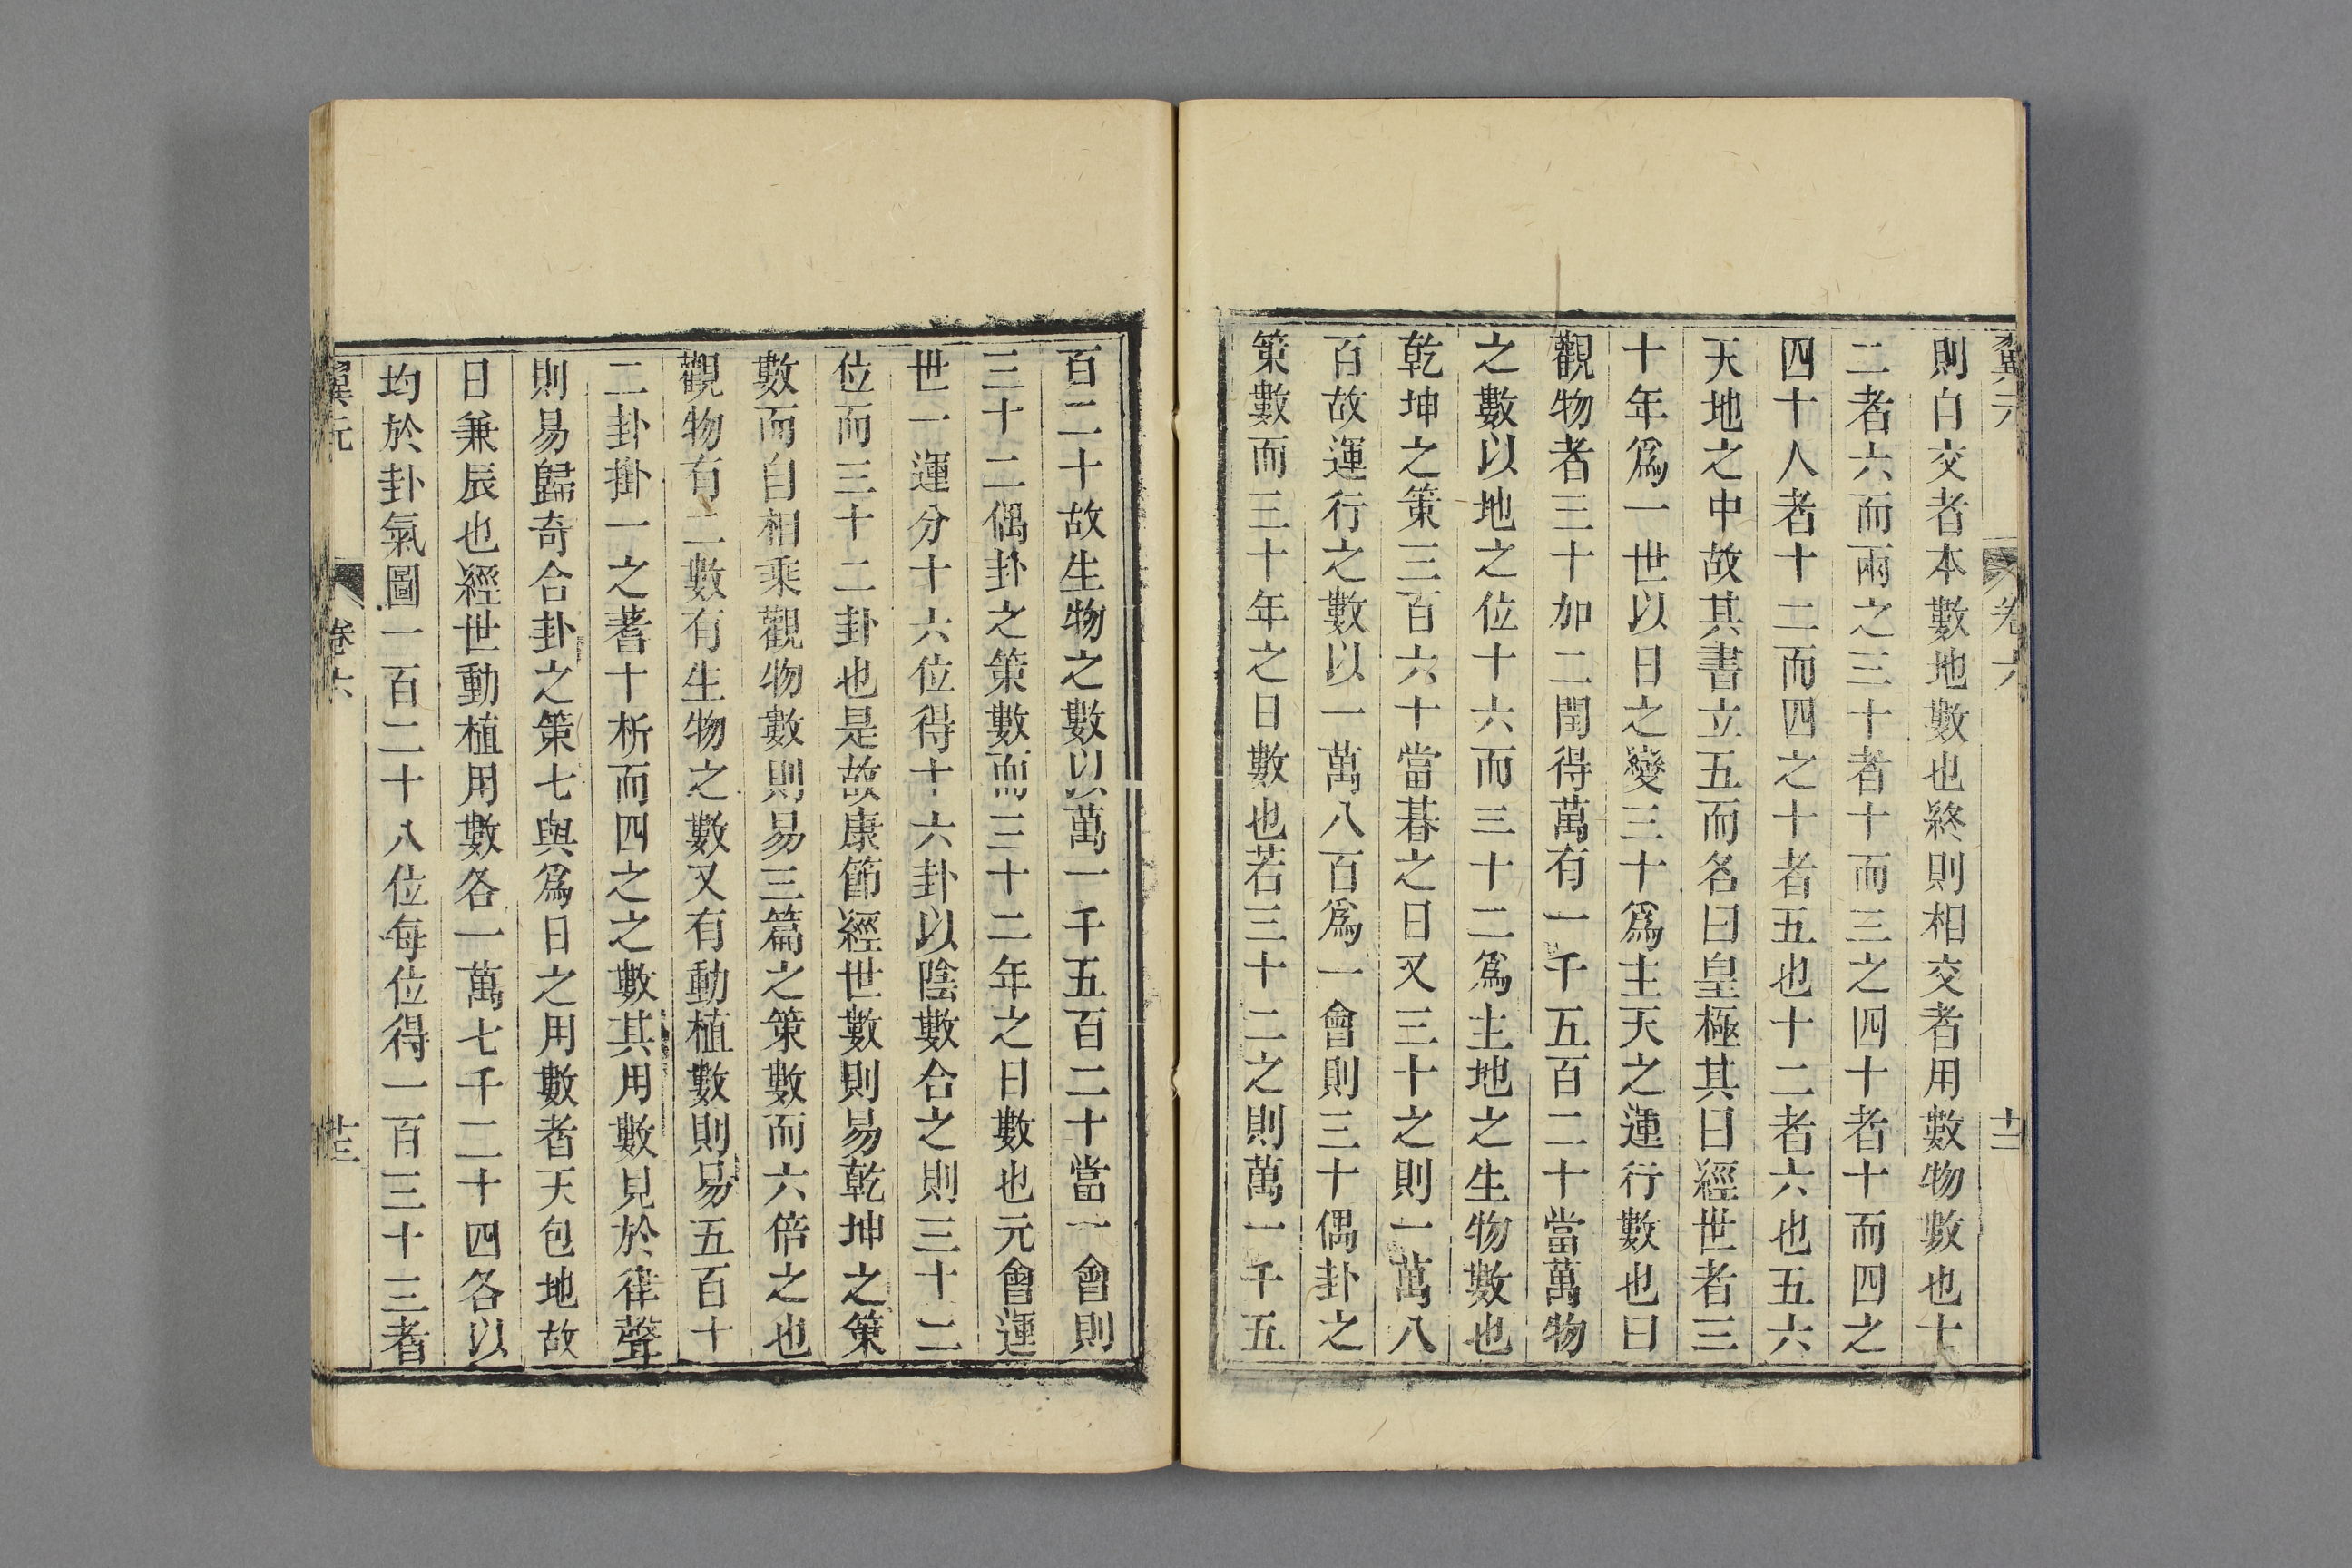 翼元 卷六 十三
則自交者本數地數也終則相交者用數物數也十
二者六而兩之三十者十而三之四十者十而四之
四十人者十二而四之十者五也十二者六也五六
天地之中故其書立五而名曰皇極其曰經世者三
十年爲一世以日之變三十爲主天之運行數也曰
觀物者三十加二閏得萬有一千五百二十當萬物
之數以地之位十六而三十二爲主地之生物數也
乾坤之策三百六十當朞之日又三十之則一萬八
百故運行之數以一萬八百爲一會則三十偶卦之
策數而三十年之日數也若三十二之則萬一千五
百二十故生物之數以萬一千五百二十當一會則
三十二偶卦之策數而三十二年之日數也元會運
世一運分十六位得十六卦以陰數合之則三十二
位而三十二卦也是故康節經世數則易乾坤之策
數而自相乘觀物數則易三篇之策數而六倍之也
觀物有二數有生物之數又有動植數則易五百十
二卦掛一之蓍十析而四之之數其用數見於律聲
則易歸奇合卦之策七與爲日之用數者天包地故
日兼辰也經世動植用數各一萬七千二十四各以
均於卦氣圖一百二十八位每位得一百三十三者
翼元 卷六